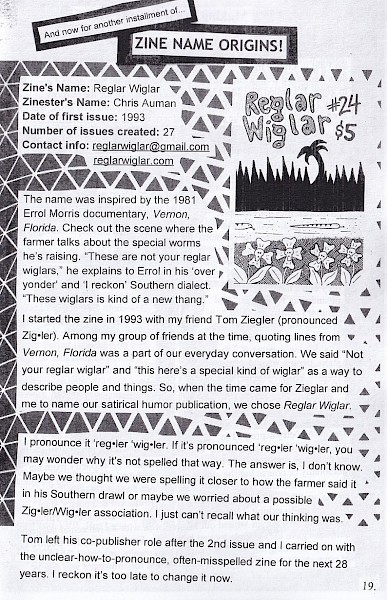 And now for another installment of...
ZINE NAME ORIGINS!
Zine's Name: Reglar Wiglar
Zinester's Name: Chris Auman
Date of first issue: 1993
Number of issues created: 27
Contact info: reglarwiglar@gmail.com
reglarwiglar.com
Reglar
Wiglar
#24
$5
The name was inspired by the 1981
Errol Morris documentary, Vernon,
Florida. Check out the scene where the
farmer talks about the special worms
he's raising. “These are not your reglar
wiglars,” he explains to Errol in his 'over
yonder' and 'I reckon' Southern dialect.
“These wiglars is kind of a new thang.”
I started the zine in 1993 with my friend Tom Ziegler (pronounced
Zig•ler). Among my group of friends at the time, quoting lines from
Vernon, Florida was a part of our everyday conversation. We said “Not
your reglar wiglar” and “this here's a special kind of wiglar” as a way to
describe people and things. So, when the time came for Zieglar and
me to name our satirical humor publication, we chose Reglar Wiglar.
I pronounce it 'reg•ler 'wig•ler. If it's pronounced 'reg•ler 'wig•ler, you
may wonder why it's not spelled that way. The answer is, I don't know.
Maybe we thought we were spelling it closer to how the farmer said it
in his Southern drawl or maybe we worried about a possible
Zig•ler/Wig•ler association. I just can't recall what our thinking was.
Tom left his co-publisher role after the 2nd issue and I carried on with
the unclear-how-to-pronounce, often-misspelled zine for the next 28
years. I reckon it's too late to change it now.
19.